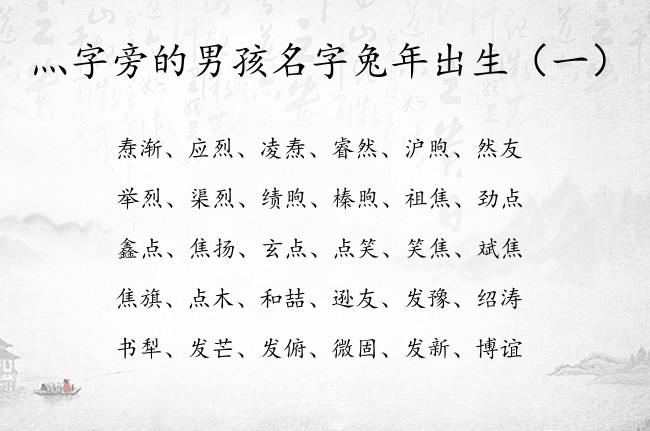 灬字旁的男孩名字兔年出生（一）
焘渐、应烈、凌焘、睿然、沪煦、然友
举烈、渠烈、绩煦、榛煦、祖焦、劲点
鑫点、焦扬、玄点、点笑、笑焦、斌焦
焦旗、点木、和喆、逊友、发豫、绍涛
书犁、发芒、发俯、微固、发新、博谊